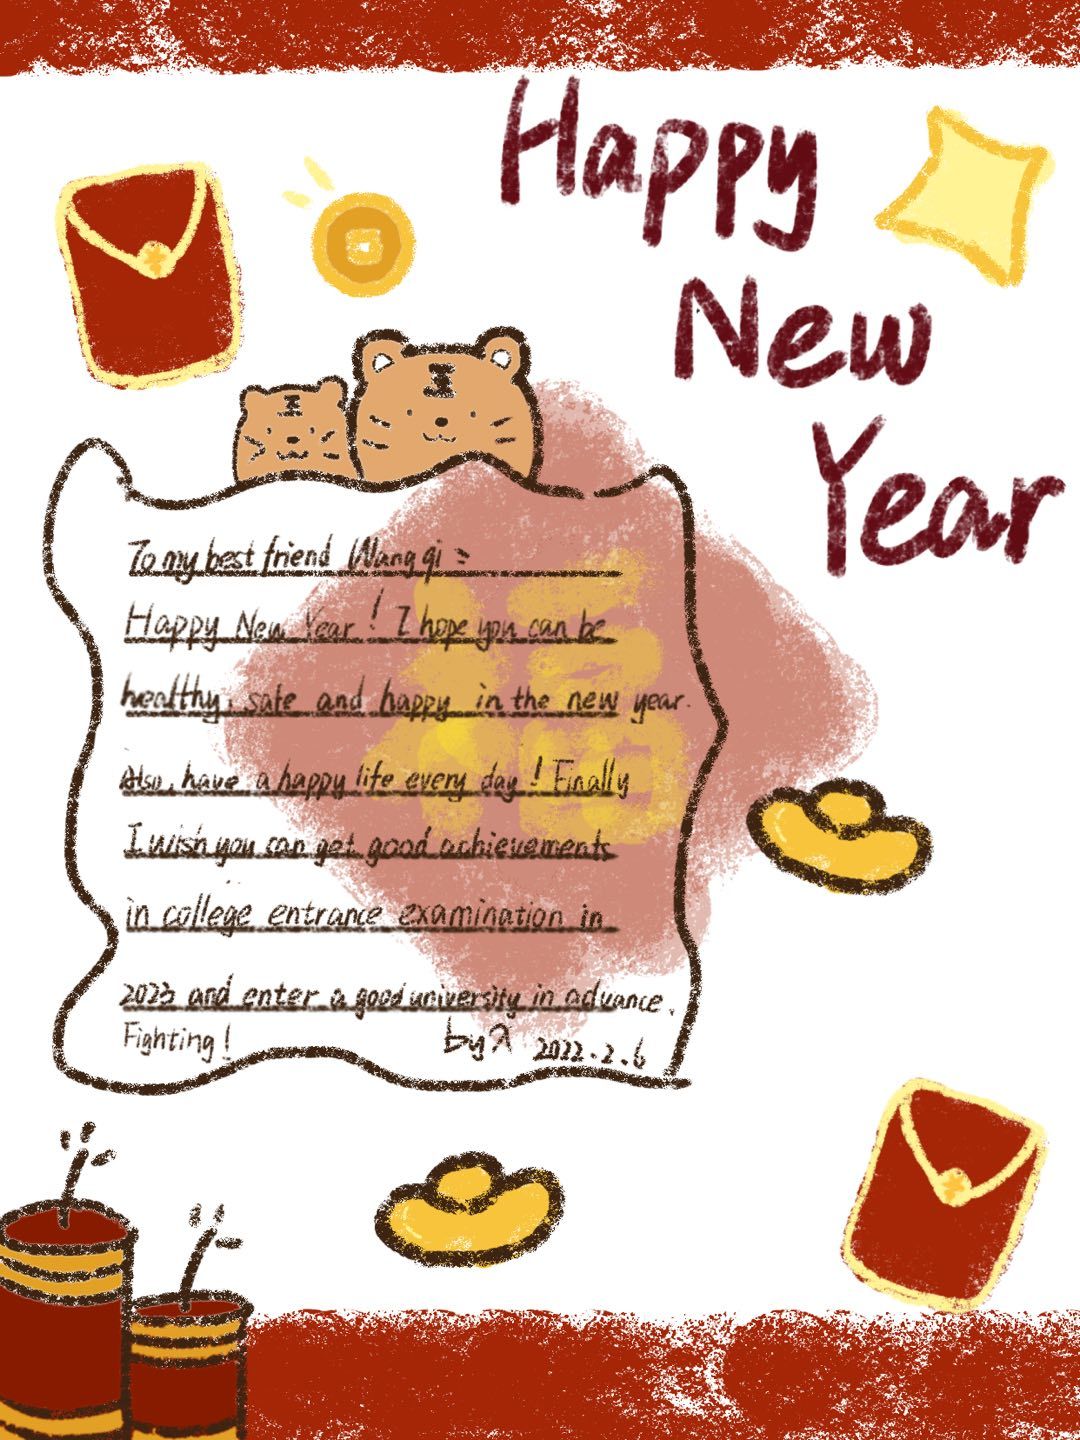 Happy
New
Year
To my best friend Wang qi :
Happy New Year ! I hope you can be
healthy, safe and happy in the new year.
Also, have a happy life every day ! Finally
I wish you can get good achievements
in college entrance examination in
2023 and enter a good university in advance.
Fighting !
by 2022.2.6
福